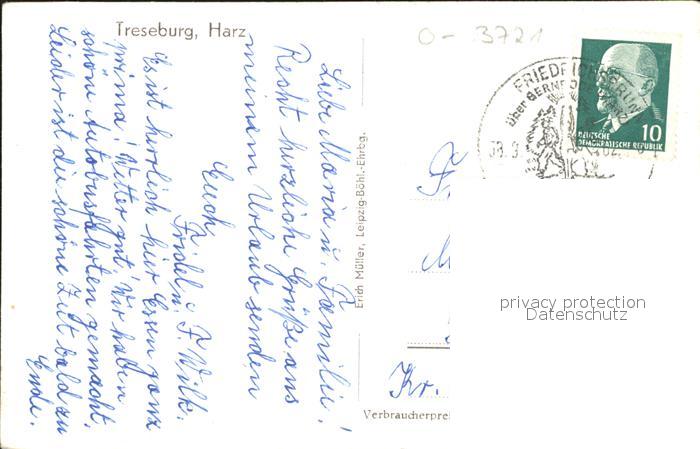 Treseburg, Harz
O- 3721
Liebe Maria u. Familie!
Recht herzliche Grüße aus
meinem Urlaub senden
Euch
Friedel u. F. Wilk.
Es ist herrlich hier Essen ganz
prima! Wetter gut! Wir haben
schöne Autobusfahrten gemacht.
Leider ist die schöne Zeit bald zu
Ende.
Erich Müller, Leipzig-Böhl.-Ehrbg.
FRIEDRICHSBRUNN
über BERNBURG
DEUTSCHE
DEMOKRATISCHE REPUBLIK
10
Kr.
Verbraucherprei
privacy protection
Datenschutz